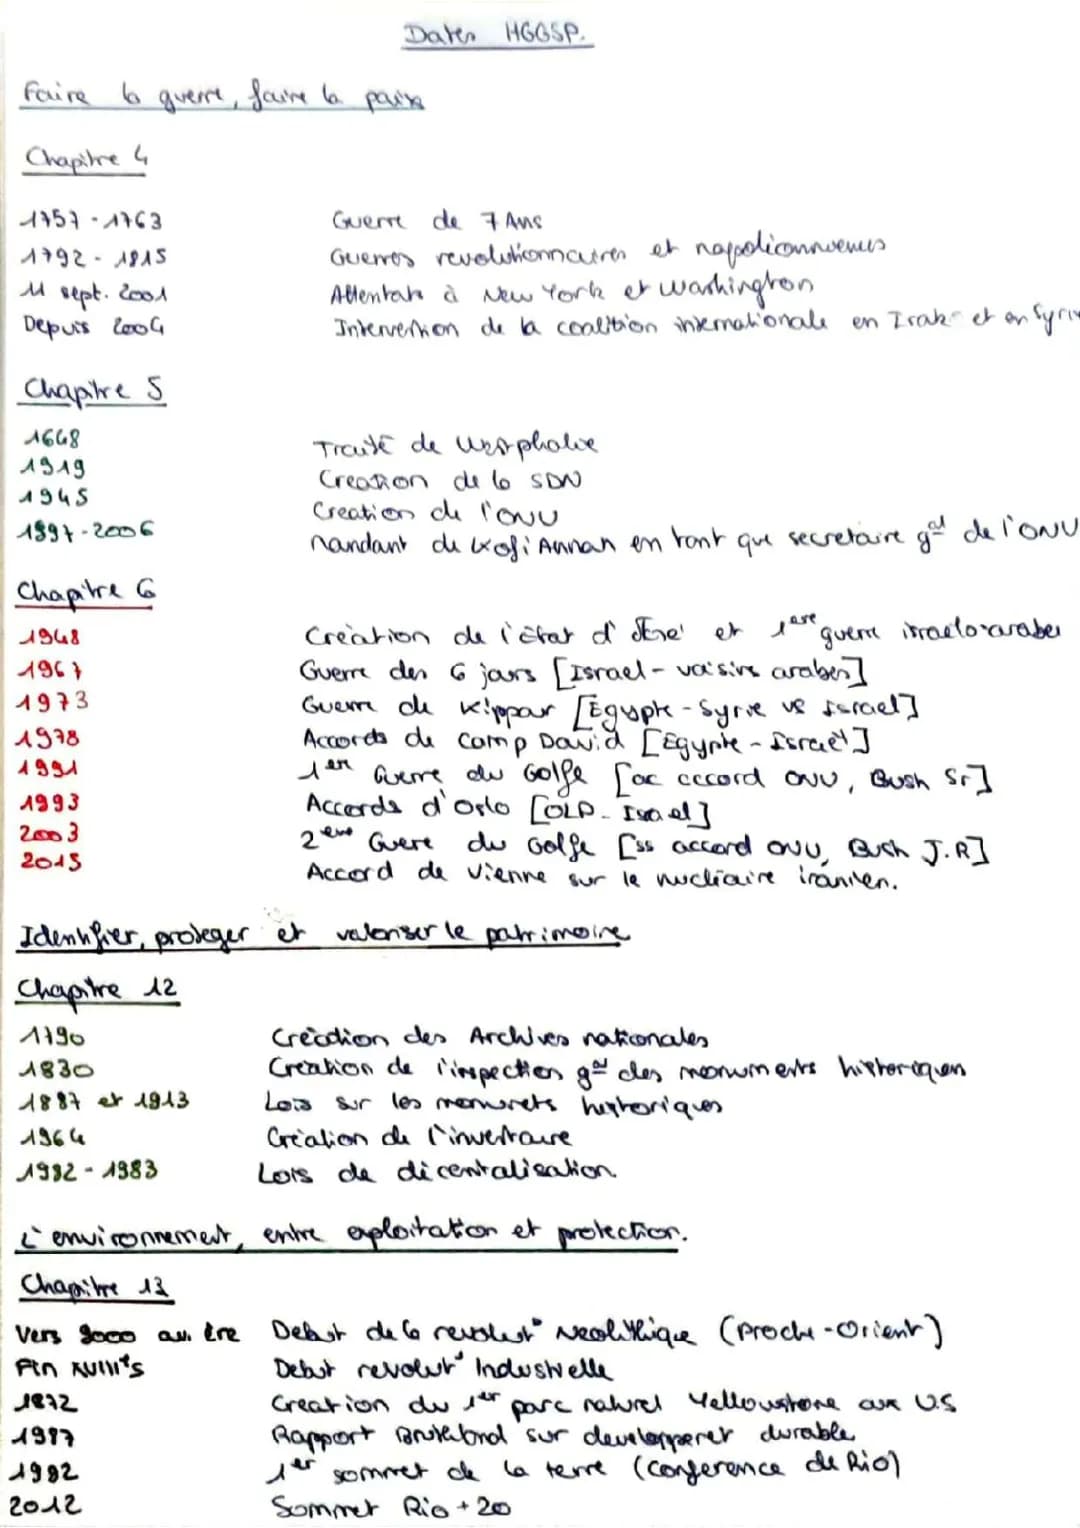 Dates HGGSP.
Faire la guerre, faire la paix
Chapitre 4
1757-1763 Guerre de 7 Ans
1792-1815 Guerres revolutionnaires et napoléonniennes
11 sept. 2001 Attentats à New York et Washington
Depuis 2004 Intervention de la coalition internationale en Irak et en Syrie
Chapitre 5
1648 Traité de Westphalie
1919 Creation de la SDN
1945 Creation de l'ONU
1997-2006 Mandant de Kofi Annan en tant que secretaire gal de l'ONU
Chapitre 6
1948 Création de l'état d' et 1ere guerre israelo-arabes
1967 Guerre des 6 jours [Israel - voisins arabes]
1973 Guerre de Kippar [Egypte - Syrie vs Israel]
1978 Accords de Camp David [Egypte - Israel]
1991 1ere Guerre du Golfe [ac accord ONU, Bush Sr]
1993 Accords d'Oslo [OLP - Israel]
2003 2eme Guere du Golfe [ss accord ONU, Bush J.R]
2015 Accord de Vienne sur le nucléaire iranien.
Identifier, proteger et valoriser le patrimoine
Chapitre 12
1790 Création des Archives nationales
1830 Création de l'inspection gal des monuments historiques
1887 et 1913 Lois sur les monuments historiques
1964 Création de l'inventaire
1982-1983 Lois de décentralisation.
L'environnement, entre exploitation et protection.
Chapitre 13
Vers 9000 av. ère Debut de la revolut° Neolithique (Proche-Orient)
Fin XVIII's Debut revolut° Industrielle
1872 Creation du 1er parc naturel Yellowstone aux U.S
1987 Rapport sur developperet durable
1992 1er sommet de la terre (Conference de Rio)
2012 Sommet Rio + 20